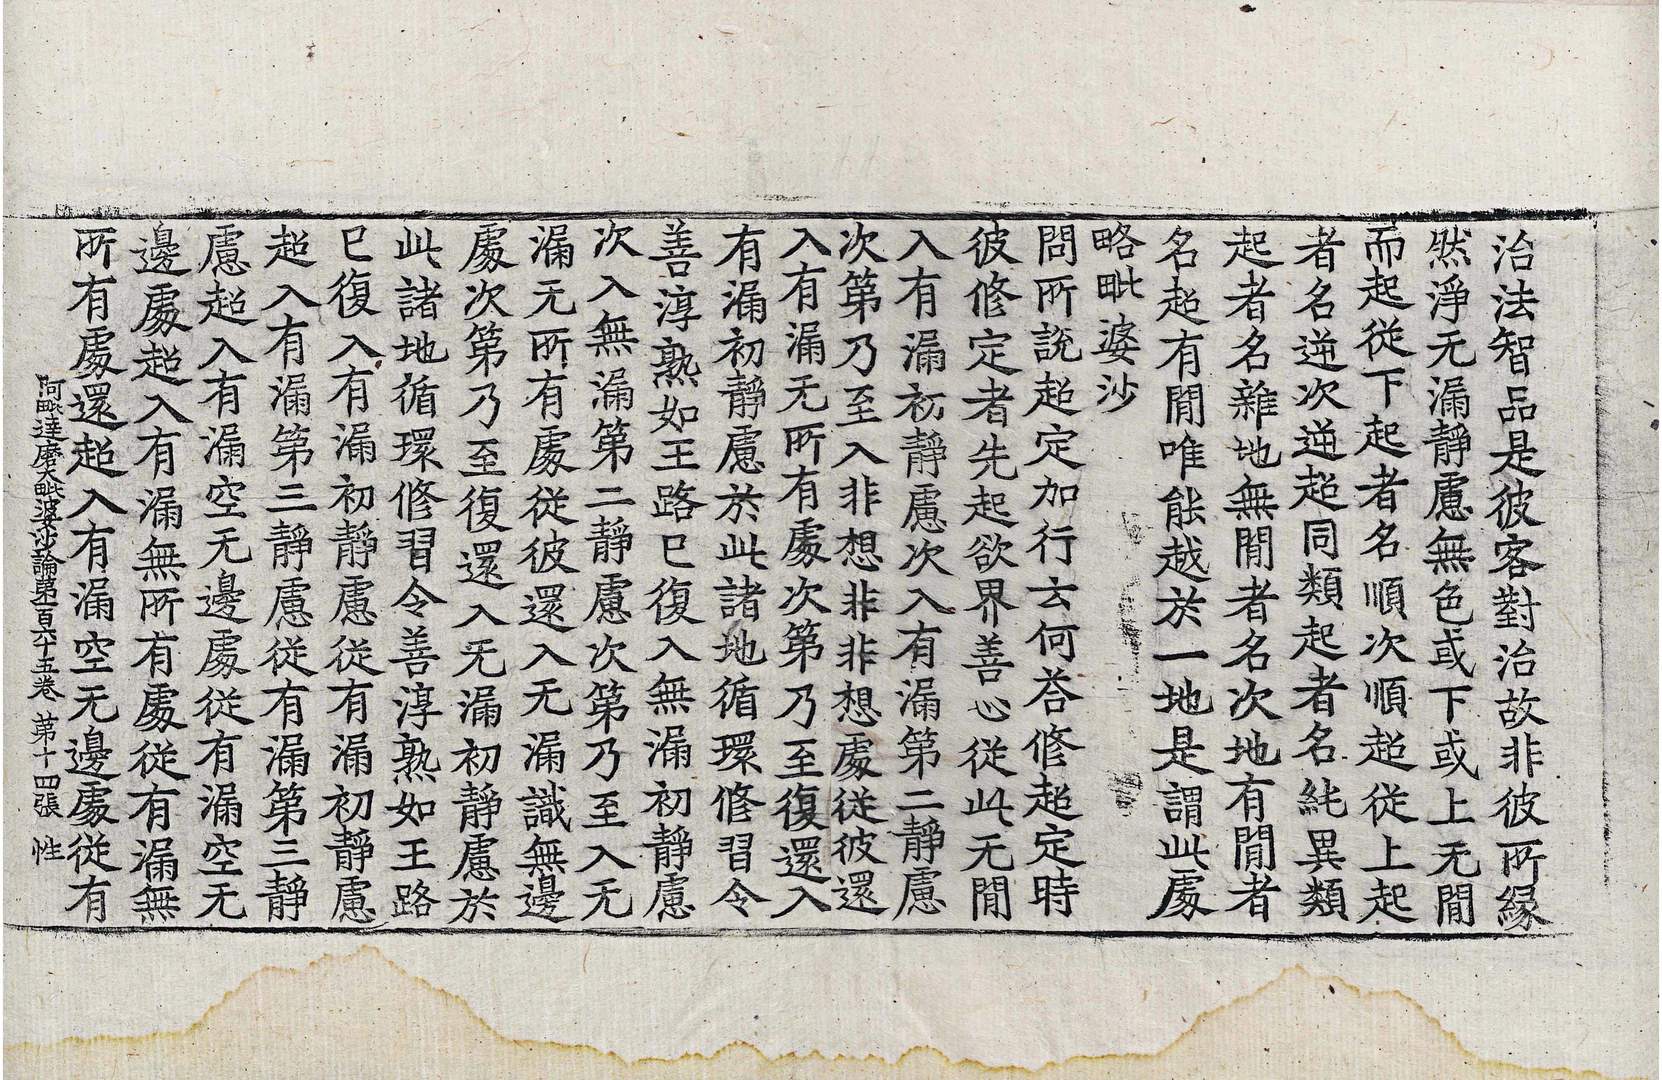 治法智品是彼客對治故非彼所縁
然淨无漏靜慮無色或下或上无閒
而起從下起者名順次順超從上起
者名逆次逆超同類起者名純異類
起者名雜地無閒者名次地有閒者
名超有閒唯能越於一地是謂此處
略毗婆沙
問所說超定加行云何荅修超定時
彼修定者先起欲界善心從此无閒
入有漏初靜慮次入有漏第二靜慮
次第乃至入非想非非想處從彼還
入有漏无所有處次第乃至復還入
有漏初靜慮於此諸地循環修習令
善淳熟如王路已復入無漏初靜慮
次入無漏第二靜慮次第乃至入无
漏无所有處從彼還入无漏識無邊
處次第乃至復還入无漏初靜慮於
此諸地循環修習令善淳熟如王路
已復入有漏初靜慮從有漏初靜慮
超入有漏第三靜慮從有漏第三靜
慮超入有漏空无邊處從有漏空无
邊處超入有漏無所有處從有漏無
所有處還超入有漏空无邊處從有
阿毗達磨大毗婆沙論第一百六十五卷 第十四張 性